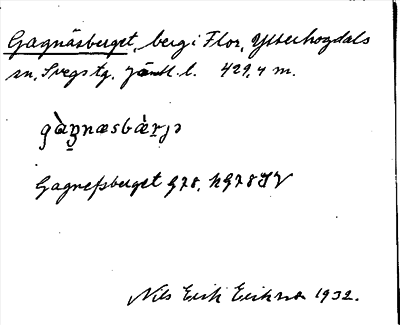 Gagnäsberget, berg i Flor, Ytterhogdals
sn, Svegs tg, Jämtl. l. 429,4 m.
Gagnefsberget G78, NG78SV
Nils Erik Eriksson 1932.